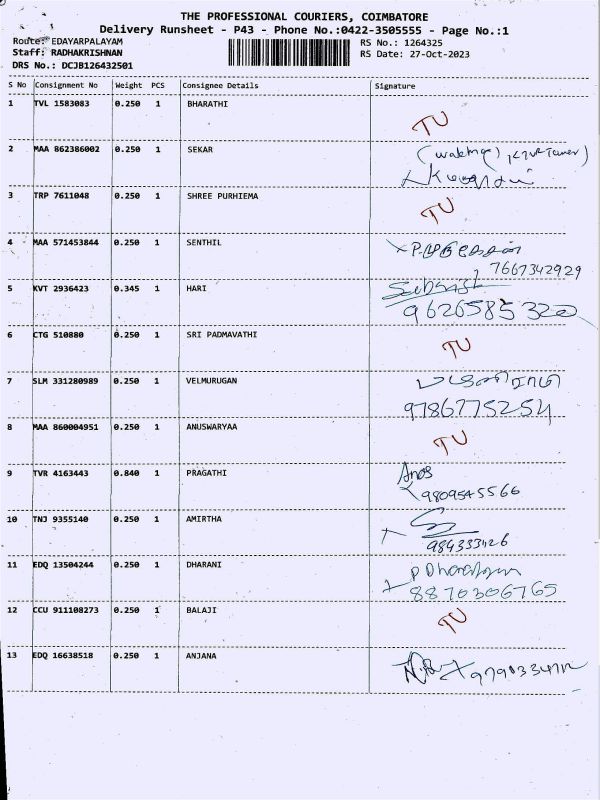 THE PROFESSIONAL COURIERS, COIMBATORE
Delivery Runsheet - P43 - Phone No.:0422-3505555 - Page No.:1
Route: EDAYARPALAYAM
RS No.: 1264325
Staff: RADHAKRISHNAN
RS Date: 27-Oct-2023
DRS No.: DCJB126432501
S No Consignment No Weight PCS Consignee Details Signature
1 TVL 1583083 0.250 1 BHARATHI
TU
2 MAA 862386002 0.250 1 SEKAR
3 TRP 7611048 0.250 1 SHREE PURHIEMA
TU
4 MAA 571453844 0.250 1 SENTHIL
7667342929
5 KVT 2936423 0.345 1 HARI
9626585322
6 CTG 510880 0.250 1 SRI PADMAVATHI
TU
7 SLM 331280989 0.250 1 VELMURUGAN
9786775254
8 MAA 860004951 0.250 1 ANUSWARYAA
TU
9 TVR 4163443 0.840 1 PRAGATHI
9809545566
10 TNJ 9355140 0.250 1 AMIRTHA
11 EDQ 13504244 0.250 1 DHARANI
8870306765
12 CCU 911108273 0.250 1 BALAJI
TU
13 EDQ 16638518 0.250 1 ANJANA